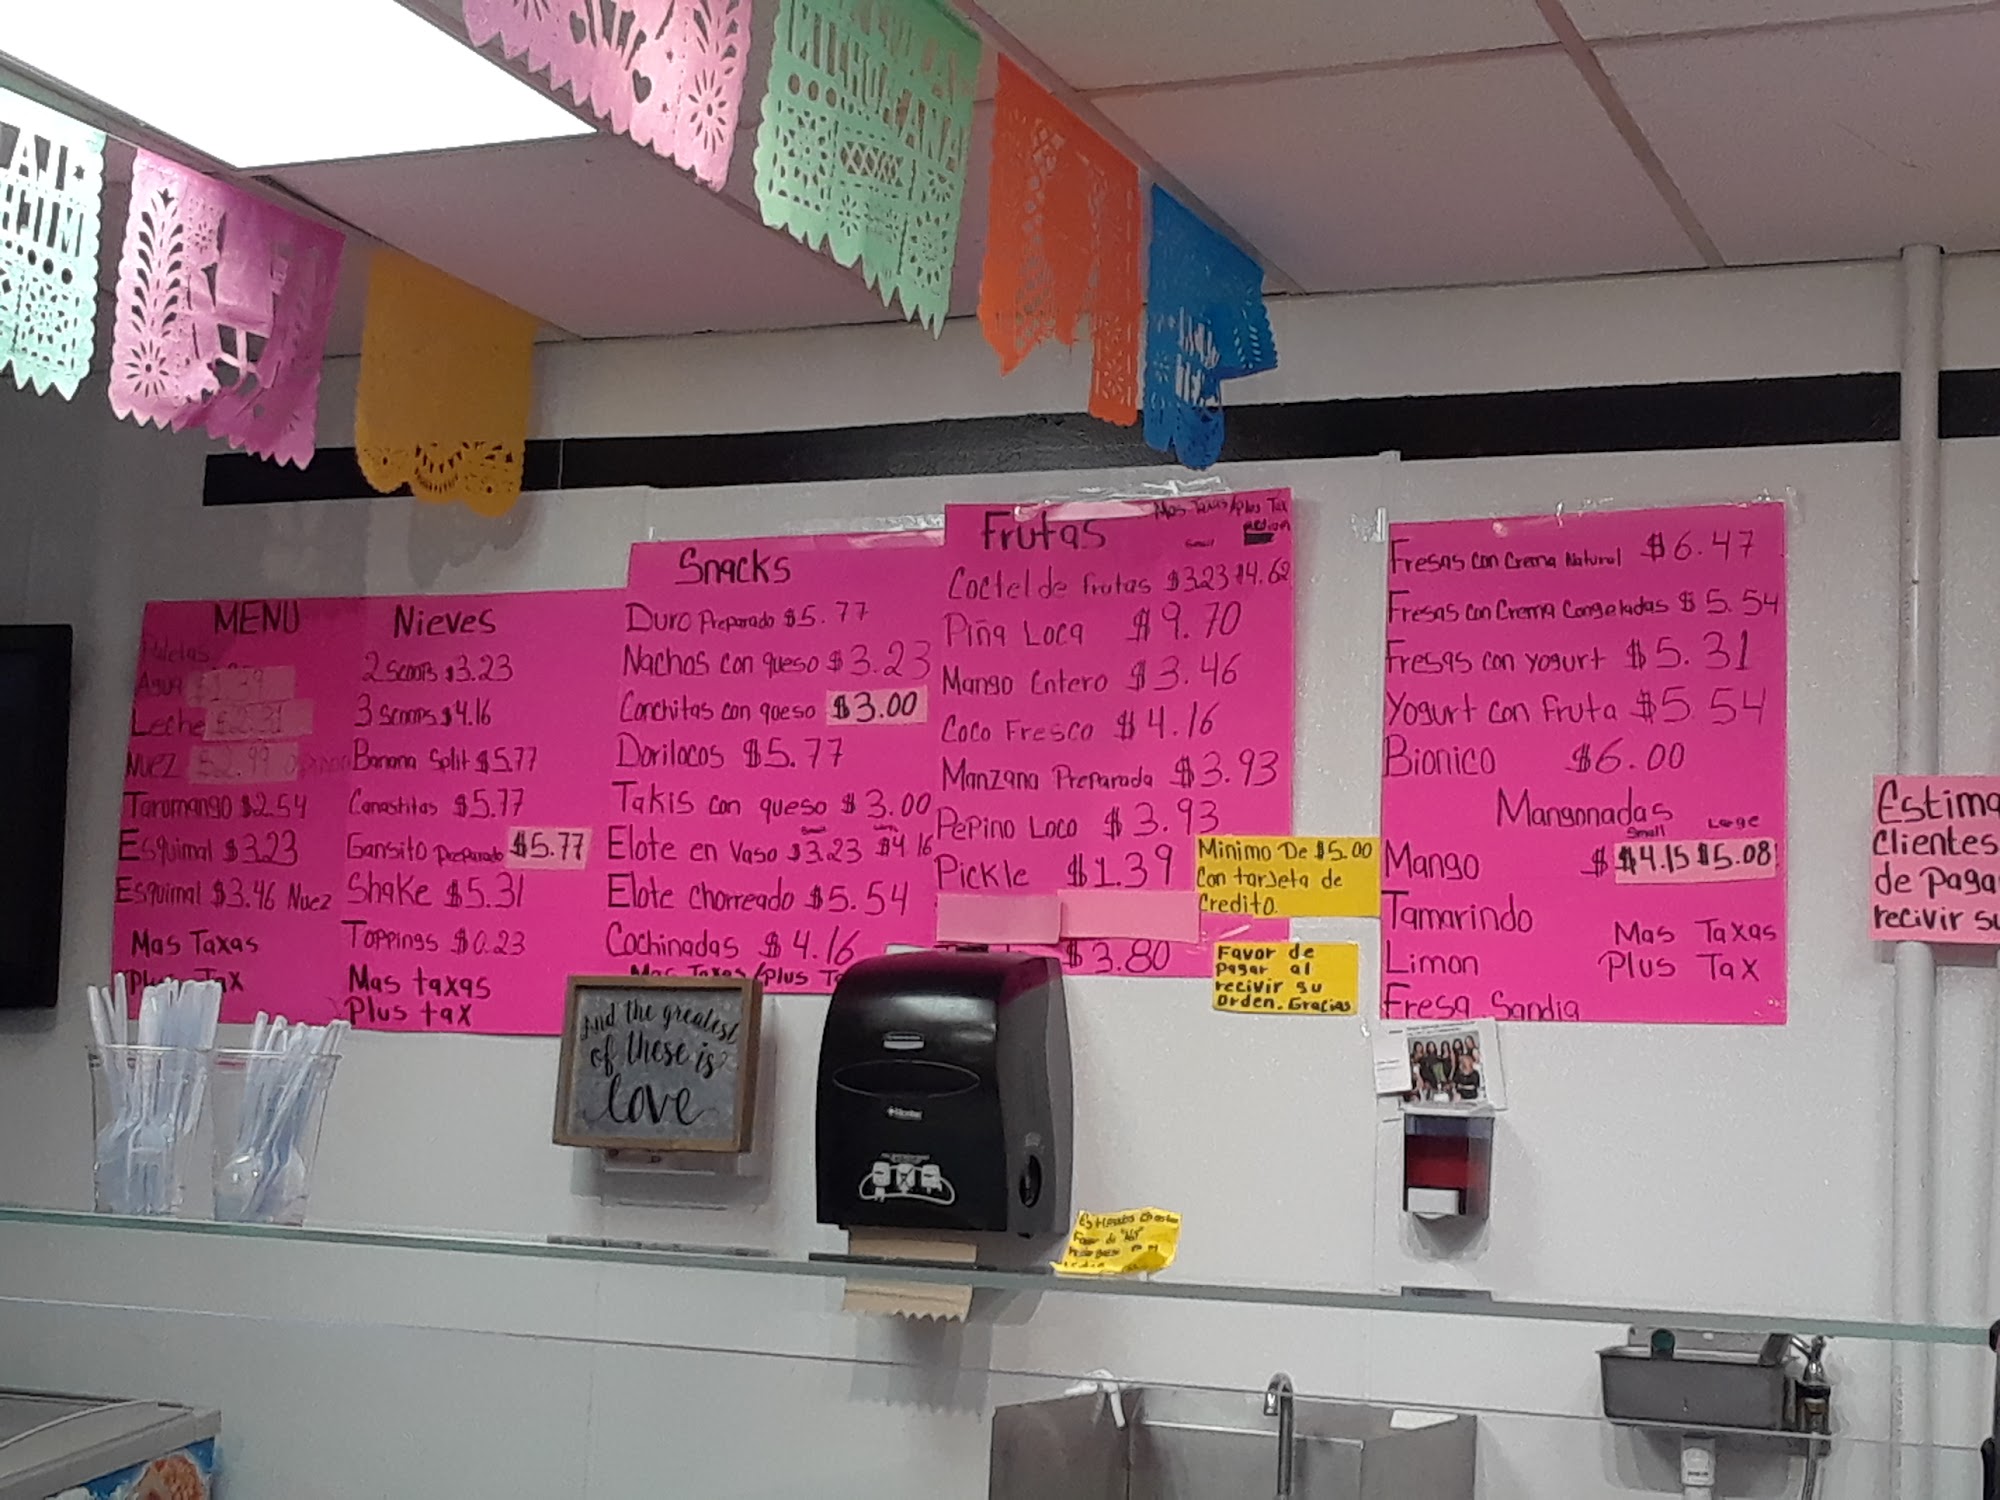 MICHOACANA
MENU
Paletas
Agua $1.39
Leche $2.31
Nuez $2.99
Taromango $2.54
Esquimal $3.23
Esquimal $3.46 Nuez
Mas Taxas
Plus Tax
Nieves
2 Scoops $3.23
3 Scoops $4.16
Banana Split $5.77
Canastitas $5.77
Gansito Preparado $5.77
Shake $5.31
Toppings $0.23
Mas taxas
Plus tax
Snacks
Duro Preparado $5.77
Nachos con queso $3.23
Conchitas con queso $3.00
Dorilocos $5.77
Takis con queso $3.00
Small Large
Elote en Vaso $3.23 $4.16
Elote Chorreado $5.54
Cochinadas $4.16
Mas Taxas/Plus Ta
Frutas
Mas Taxas/Plus Tax
Small
Coctel de frutas $3.23 $4.62
Piña Loca $9.70
Mango Entero $3.46
Coco Fresco $4.16
Manzana Preparada $3.93
Pepino Loco $3.93
Pickle $1.39
$3.80
Minimo De $5.00
Con tarjeta de
Credito.
Favor de
Pagar al
recivir su
Orden. Gracias
Fresas con Crema Natural $6.47
Fresas con Crema Congeladas $5.54
Fresas con yogurt $5.31
Yogurt con fruta $5.54
Bionico $6.00
Mangonadas
Small Large
Mango $ $4.15 $5.08
Tamarindo
Limon
Fresa Sandia
Mas Taxas
Plus Tax
Estima
Clientes
de Paga
recivir su
And the greatest
of these is
love